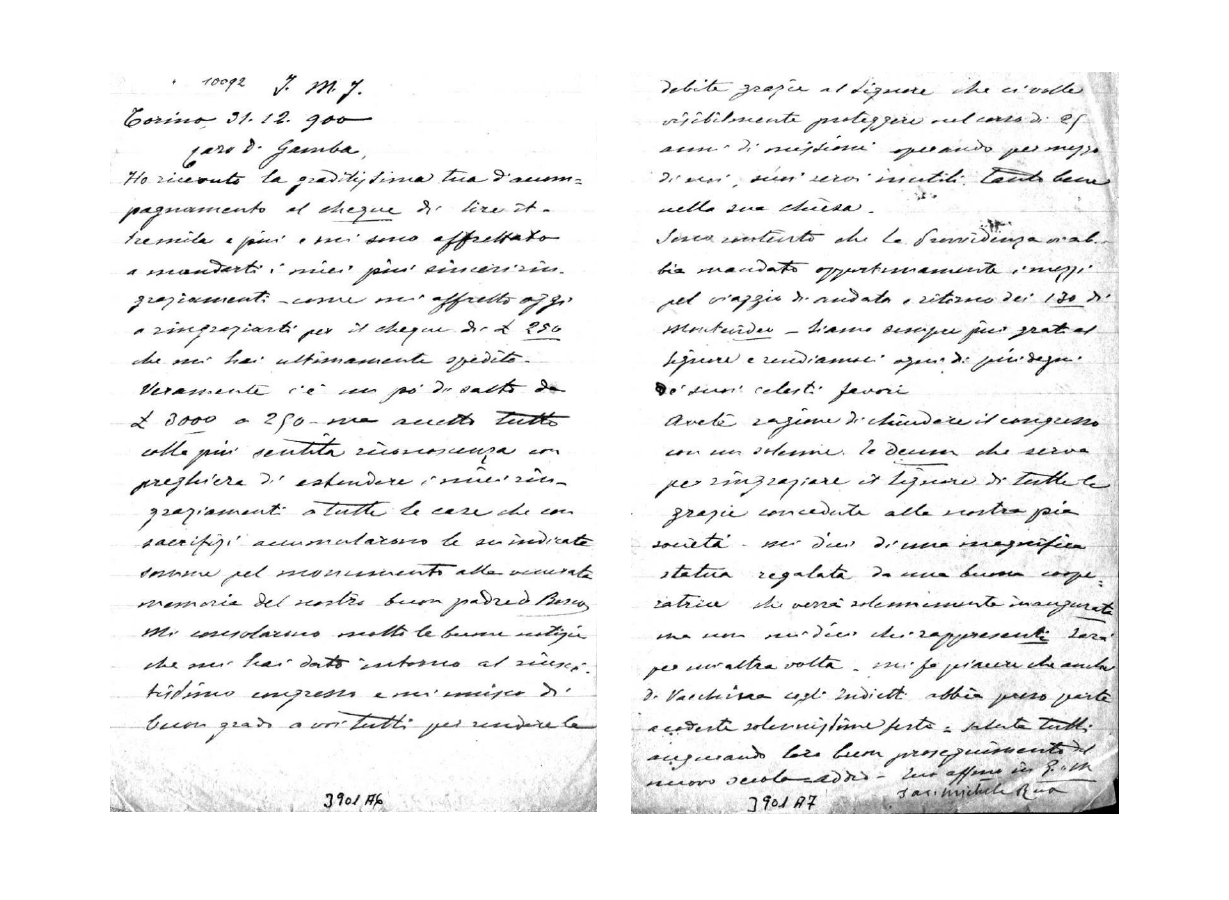 10092 J. M. J.
Torino, 31. 12. 900
Caro D. Gamba,
Ho ricevuto la graditissima tua d'accom=
pagnamento al cheque di lire it.
tremila e più e mi sono affrettato
a mandarti i miei più sinceri rin-
graziamenti - come mi affretto oggi
a ringraziarti per il cheque di £ 250
che mi hai ultimamente spedito.
Veramente c'è un pò di salto da
£ 3000 a 250 - ma accetto tutto
colla più sentita riconoscenza con
preghiera di estendere i miei rin-
graziamenti a tutte le case che con
sacrifizi accumularono le suindicate
somme pel monumento alla venerata
memoria del nostro buon padre D. Bosco
Mi consolarono molto le buone notizie
che mi hai dato intorno al riusci-
tissimo congresso e mi unisco di
buon grado a voi tutti per rendere le
3901 A6
debite grazie al Signore che ci volle
visibilmente proteggere nel corso di 25
anni di missioni operando per mezzo
di noi, suoi servi inutili, tanto bene
nella sua chiesa.
Sono contento che la Provvidenza vi ab-
bia mandato opportunamente i mezzi
pel viaggio di andata e ritorno dei 130 di
Montevideo - Siamo sempre più grati al
Signore e rendiamoci ogni dì più degni
de' suoi celesti favori
Avete ragione di chiudere il congresso
con un solenne Te Deum che serva
per ringraziare il Signore di tutte le
grazie concedute alla nostra pia
società - mi dici di una magnifica
statua regalata da una buona coope=
ratrice che verrà solennemente inaugurata
ma non mi dici chi rappresenti. Sarà
per un'altra volta - mi fa piacere che anche
D. Vacchina cogli Indietti abbia preso parte
a codeste solennissime feste = saluta tutti
augurando loro buon proseguimento del
nuovo secolo - addio - Tuo affmo in G. e M.
Sac. Michele Rua
3901 A7